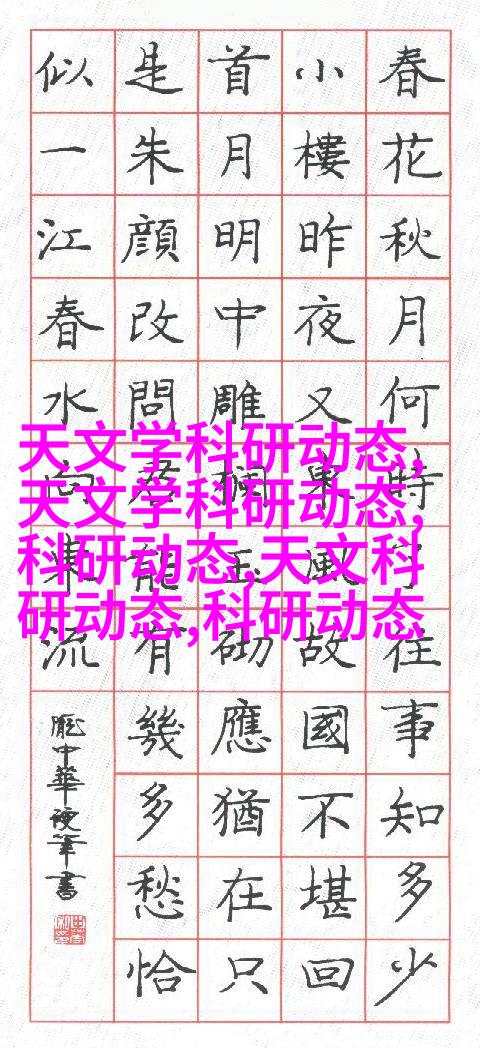 春花秋月何時了往事知多少
小樓昨夜又東風故國不堪回
首月明中雕欄玉砌應猶在只
是朱顔改問君能有幾多愁恰
似一江春水向東流
龐中華硬筆書
天文学科研动态,
天文学科研动态,
科研动态,天文科
研动态,科研动态